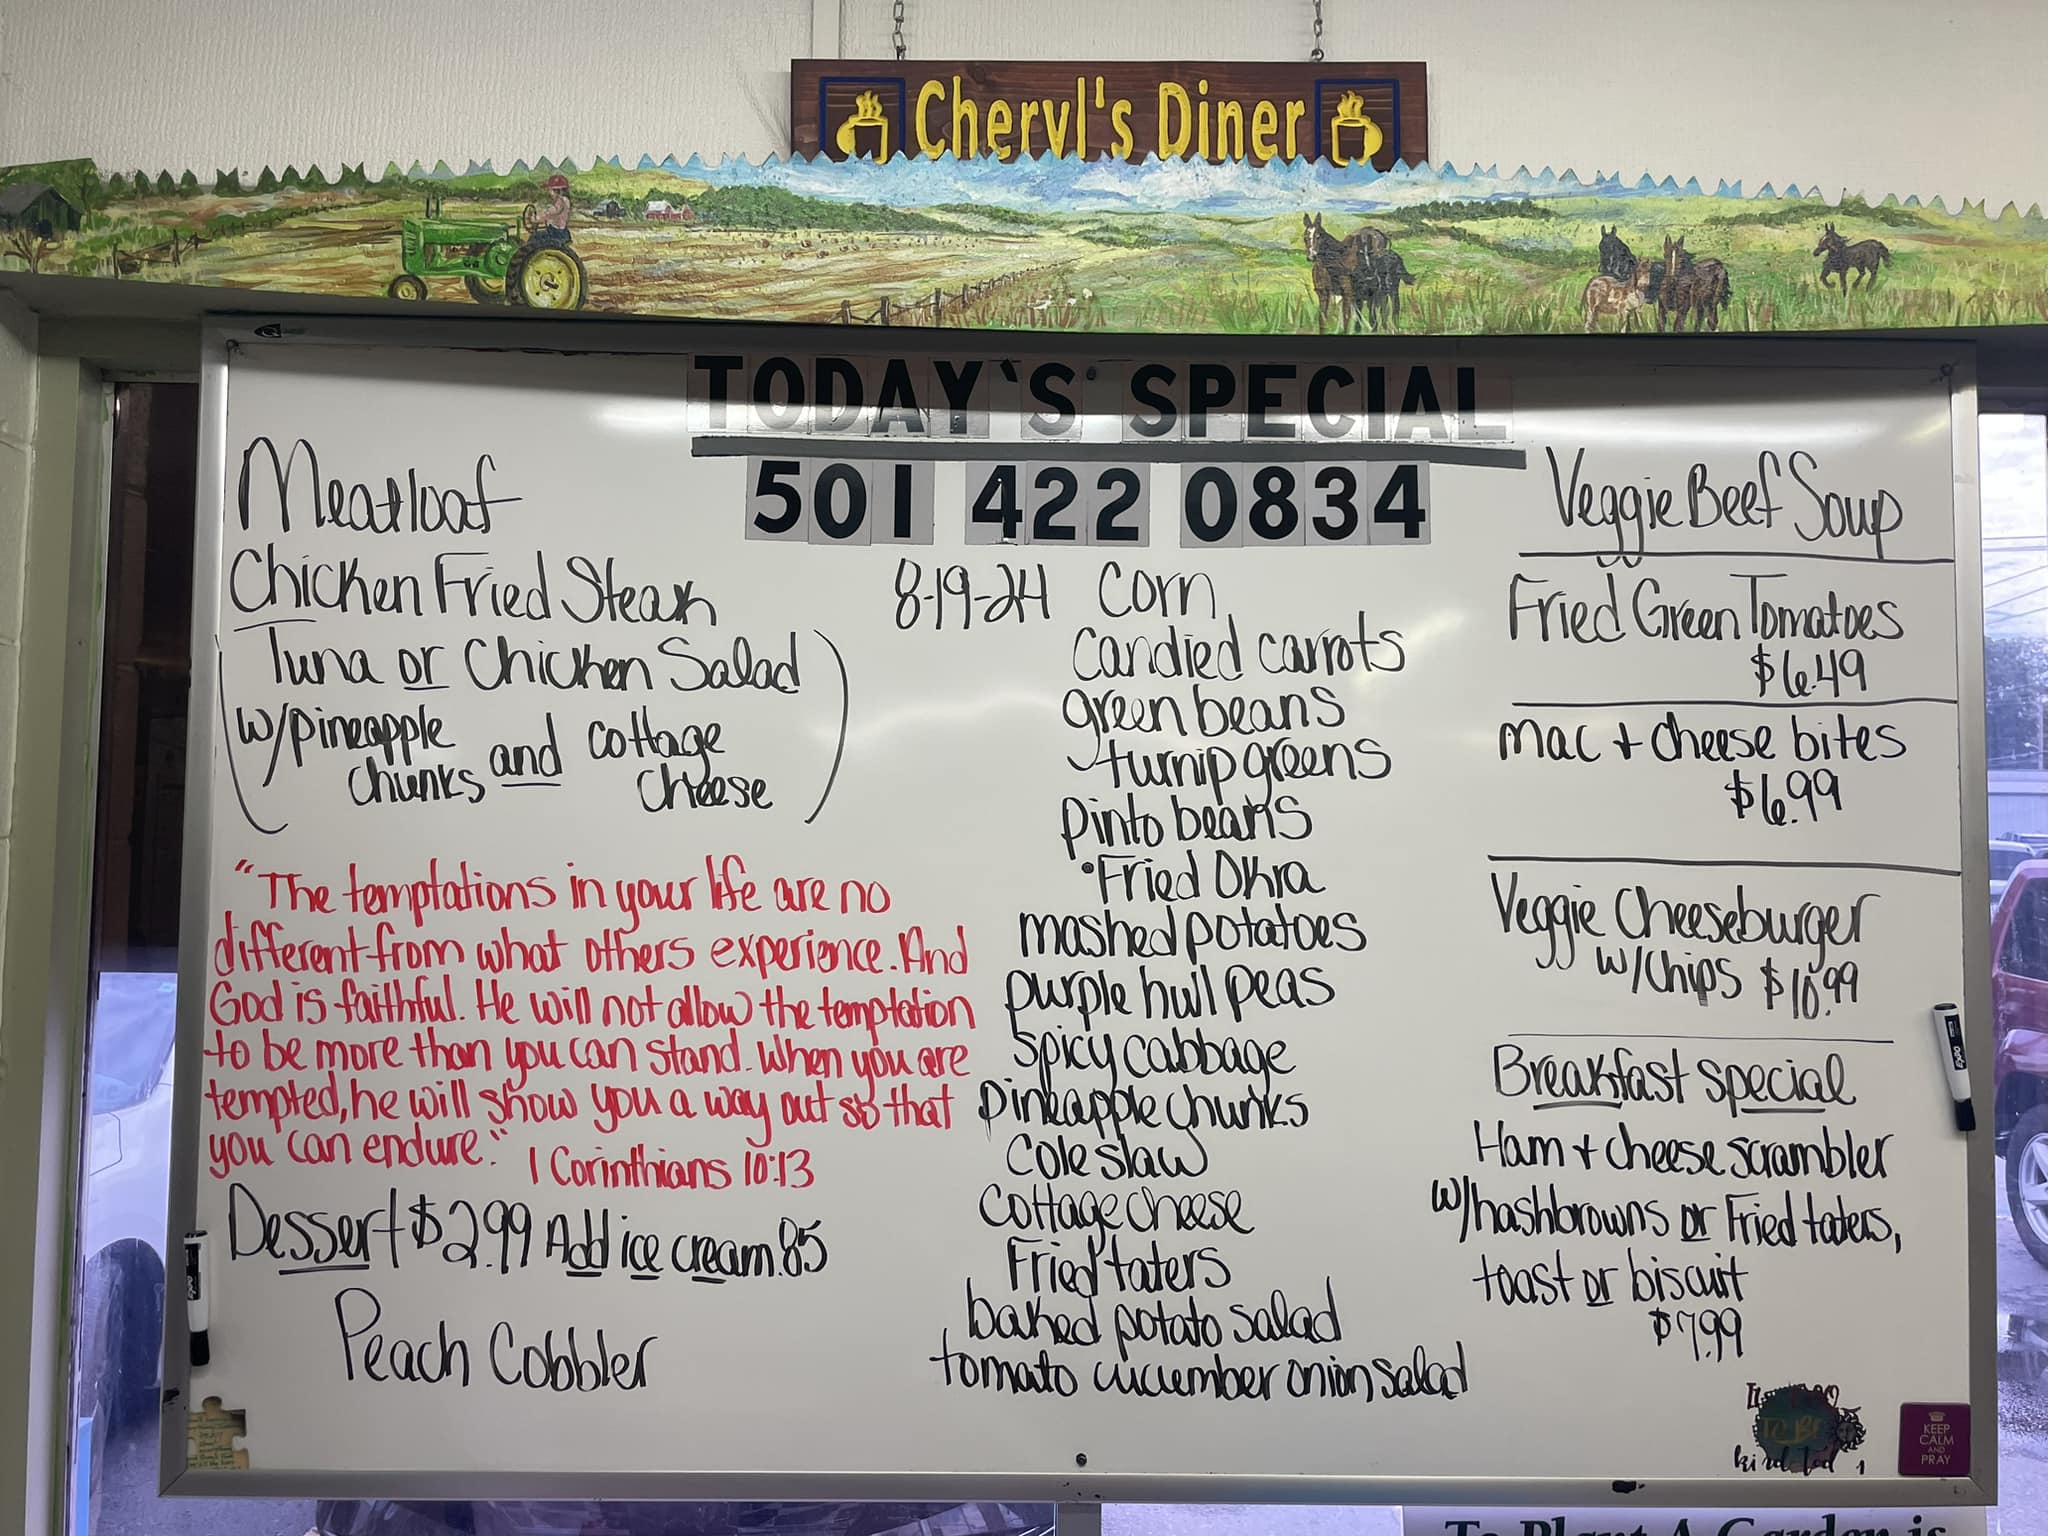 Cheryl's Diner
TODAY'S SPECIAL
501 422 0834
8-19-24
Meatloaf
Chicken Fried Steak
Tuna or Chicken Salad
w/pineapple
chunks and cottage
cheese
"The temptations in your life are no
different from what others experience. And
God is faithful. He will not allow the temptation
to be more than you can stand. When you are
tempted, he will show you a way out so that
you can endure."
1 Corinthians 10:13
Dessert $2.99 Add ice cream .85
Peach Cobbler
Corn
Candied carrots
green beans
turnip greens
pinto beans
•Fried Okra
mashed potatoes
purple hull peas
spicy cabbage
Pineapple chunks
Cole slaw
Cottage cheese
Fried taters
baked potato salad
tomato cucumber onion salad
Veggie Beef Soup
Fried Green Tomatoes
$6.49
Mac + cheese bites
$6.99
Veggie Cheeseburger
w/chips $10.99
Breakfast special
Ham + cheese scrambler
w/hashbrowns or Fried taters,
toast or biscuit
$7.99
KEEP
CALM
AND
PRAY
To Plant A Garden is